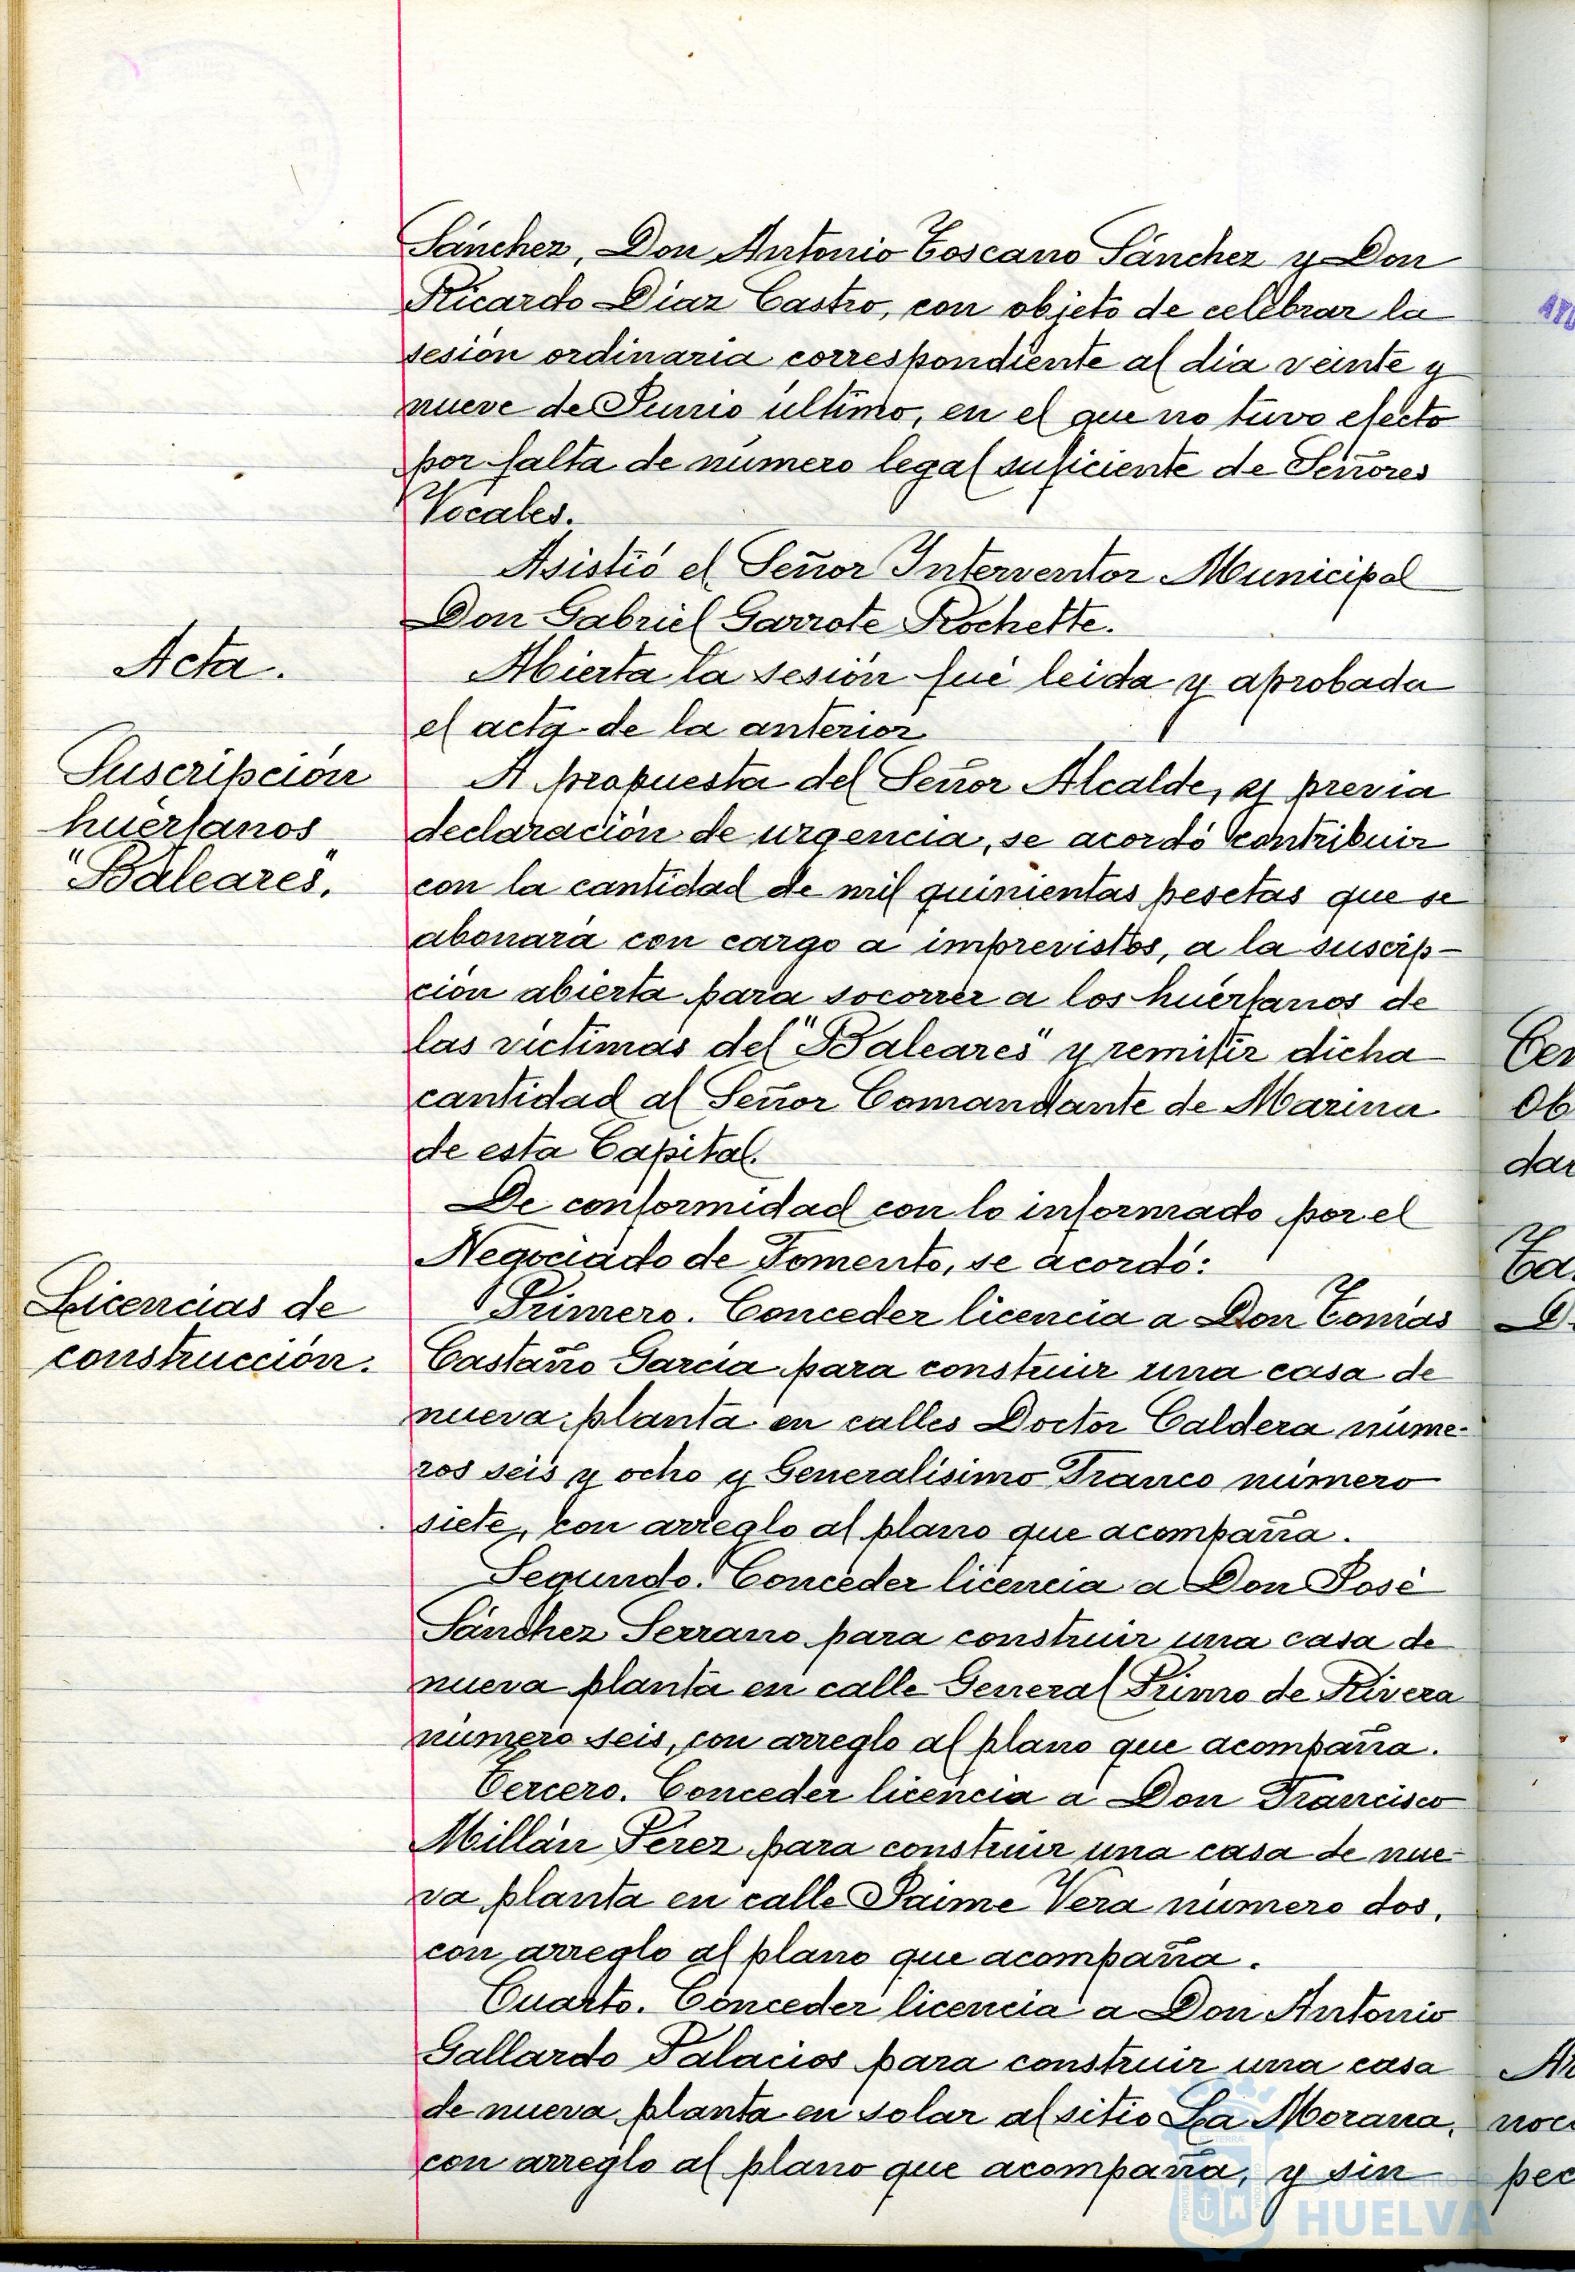 Sánchez, Don Antonio Toscano Sánchez y Don
Ricardo Díaz Castro, con objeto de celebrar la
sesión ordinaria correspondiente al dia veinte y
nueve de Junio último, en el que no tuvo efecto
por falta de número legal suficiente de Señores
Vocales.
Asistió el Señor Interventor Municipal
Don Gabriel Garrote Rochette.
Acta.
Abierta la sesión fué leida y aprobada
el acta de la anterior
Suscripción
huérfanos
"Baleares".
A propuesta del Señor Alcalde, y previa
declaración de urgencia, se acordó contribuir
con la cantidad de mil quinientas pesetas que se
abonará con cargo a imprevistos, a la suscrip-
ción abierta para socorrer a los huérfanos de
las víctimas del "Baleares" y remitir dicha
cantidad al Señor Comandante de Marina
de esta Capital.
De conformidad con lo informado por el
Negociado de Fomento, se acordó:
Licencias de
construcción.
Primero. Conceder licencia a Don Tomás
Castaño García para construir una casa de
nueva planta en calles Doctor Caldera núme-
ros seis y ocho y Generalísimo Franco número
siete, con arreglo al plano que acompaña.
Segundo. Conceder licencia a Don José
Sánchez Serrano para construir una casa de
nueva planta en calle General Primo de Rivera
número seis, con arreglo al plano que acompaña.
Tercero. Conceder licencia a Don Francisco
Millán Pérez para construir una casa de nue-
va planta en calle Jaime Vera número dos,
con arreglo al plano que acompaña.
Cuarto. Conceder licencia a Don Antonio
Gallardo Palacios para construir una casa
de nueva planta en solar al sitio La Morana,
con arreglo al plano que acompaña, y sin
Ayuntamiento de
HUELVA